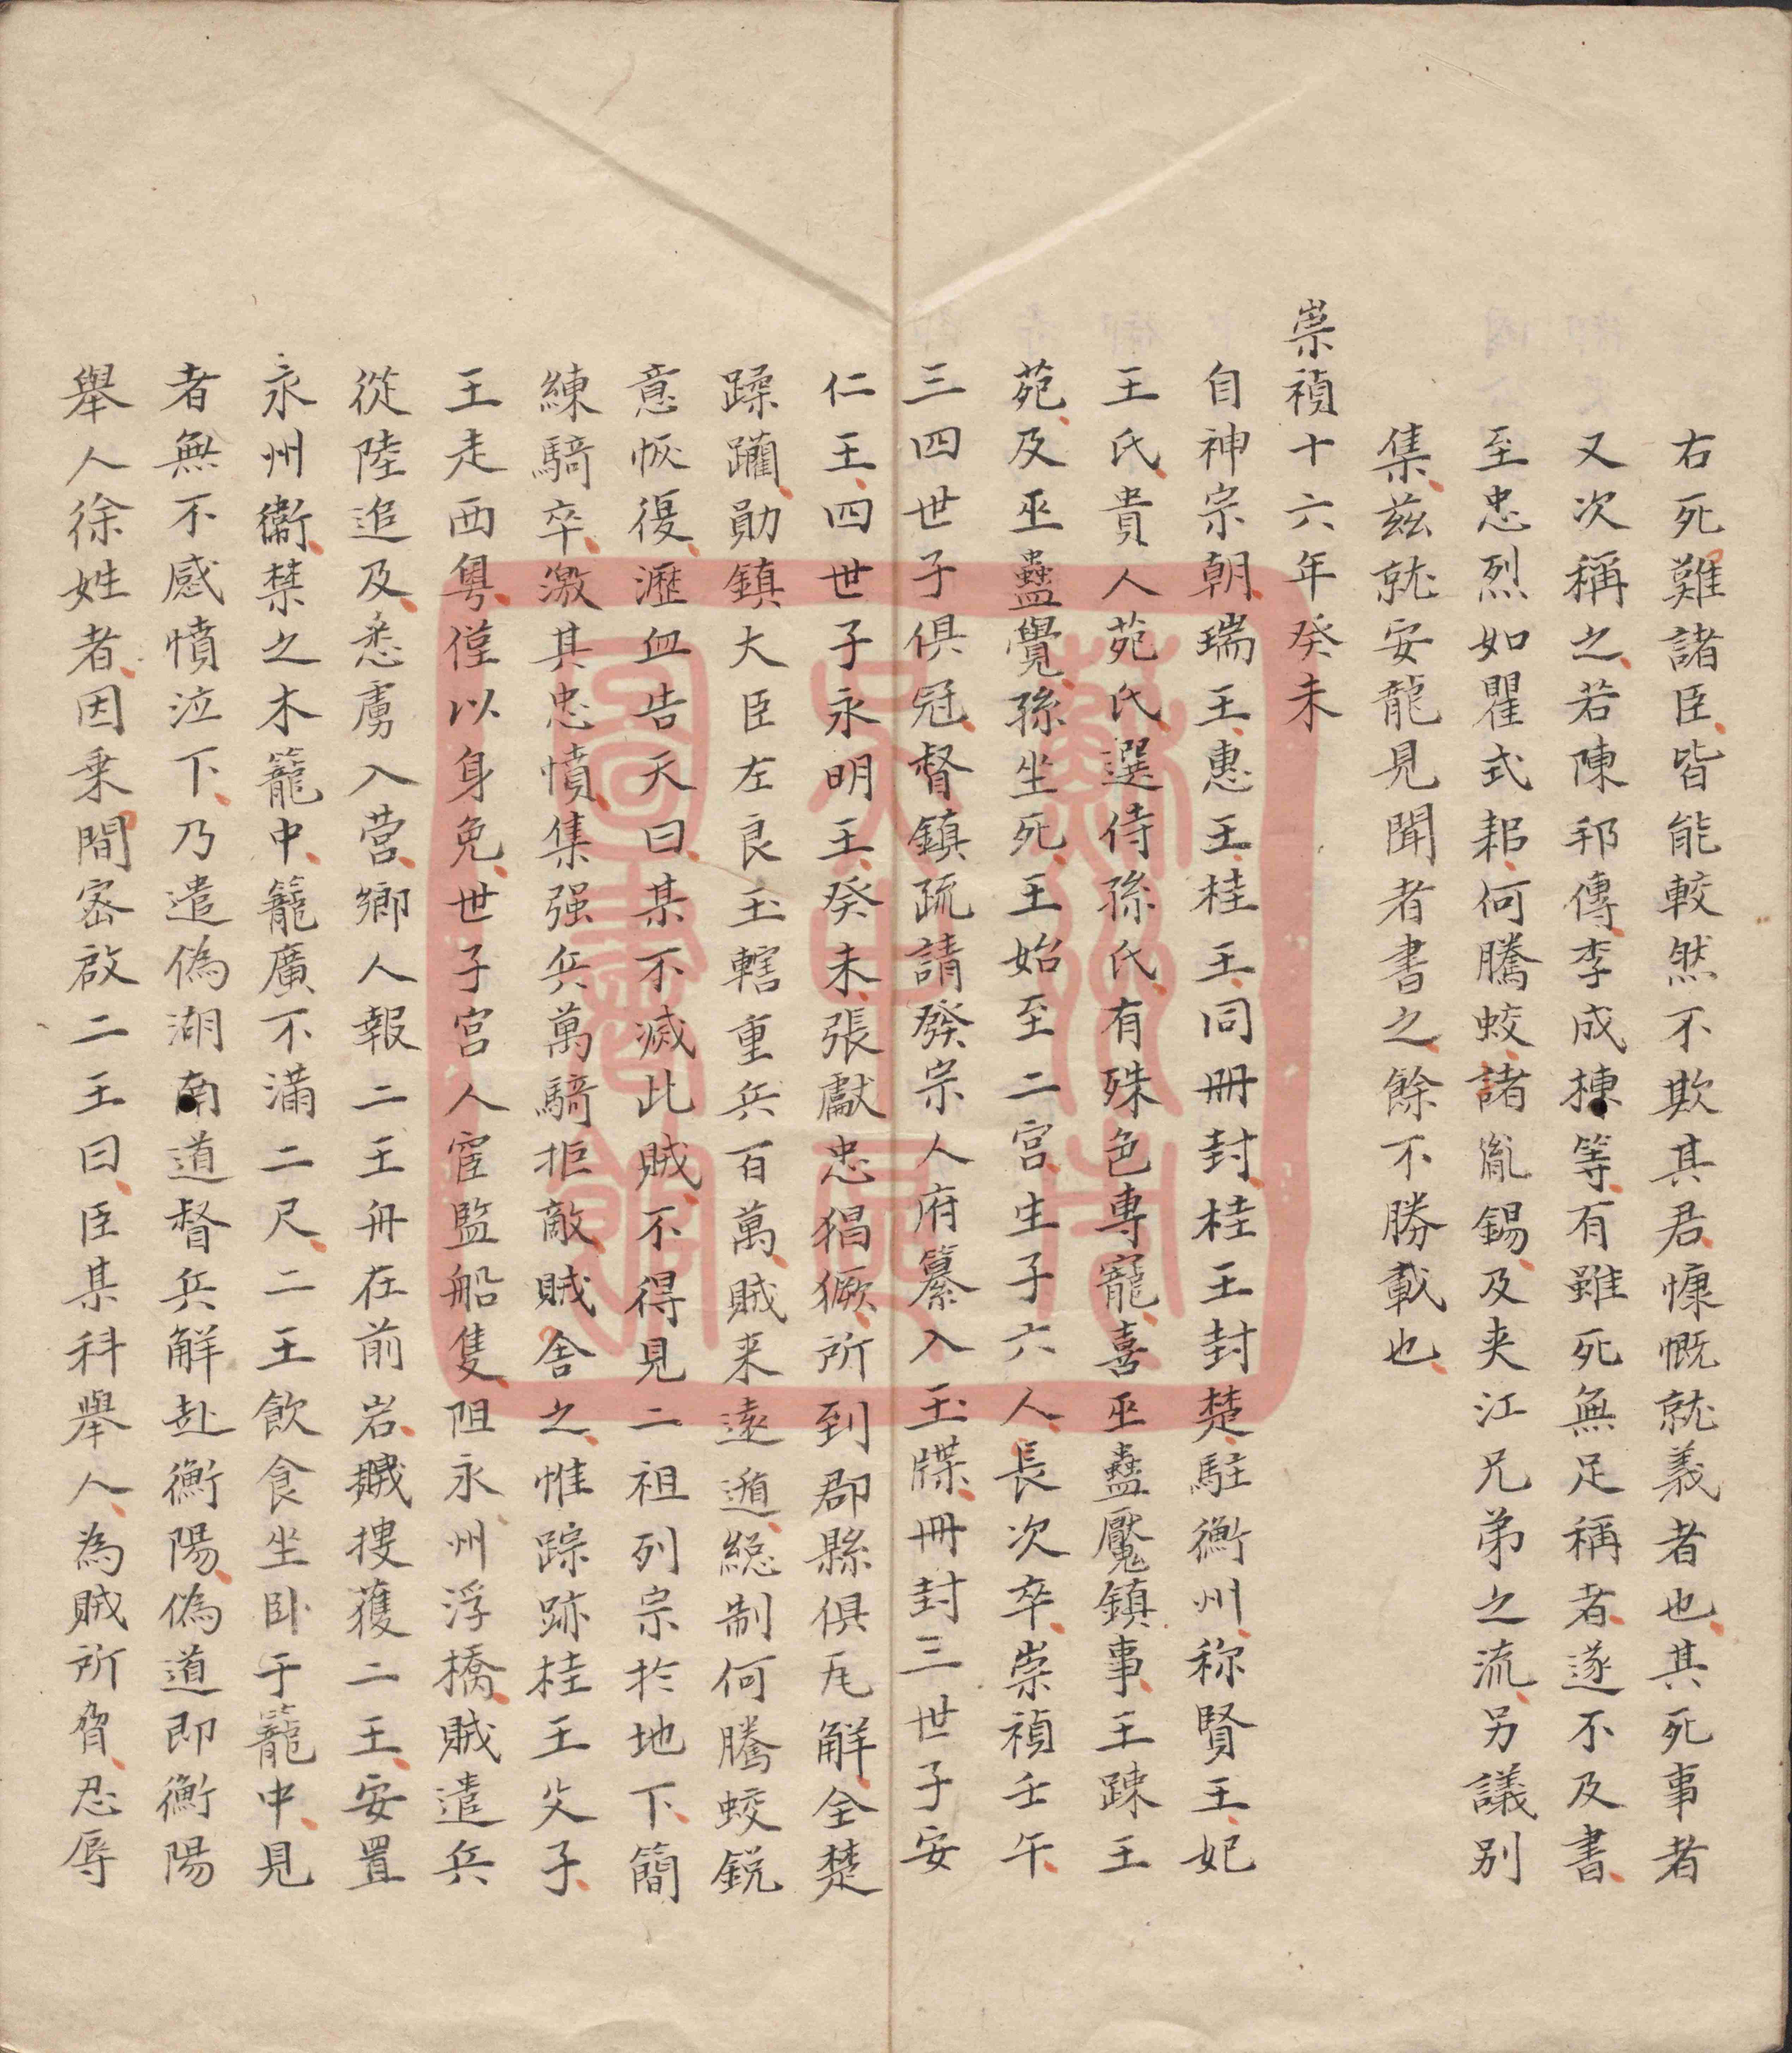 右死難諸臣皆能較然不欺其君慷慨就義者也其死事者
又次稱之若陳邦傳李成棟等有雖死無足稱者遂不及書
至忠烈如瞿式耜何騰蛟諸胤錫及夹江兄弟之流另議别
集兹就安龍見聞者書之餘不勝載也
崇禎十六年癸未
自神宗朝瑞王惠王桂王同冊封桂王封楚駐衡州称賢王妃
王氏貴人苑氏選侍孫氏有殊色專寵喜巫蠱魘鎮事王踈王
苑及巫蠱覺孫坐死王始至二宫生子六人長次卒崇禎壬午
三四世子俱冠督鎮疏請發宗人府纂入玉牒冊封三世子安
仁王四世子永明王癸未張獻忠猖獗所到郡縣俱瓦解全楚
蹂躪勛鎮大臣左良玉轄重兵百萬賊来遠遁総制何騰蛟銳
意恢復瀝血告天曰某不滅此賊不得見二祖列宗扵地下簡
練騎卒激其忠憤集强兵萬騎拒敵賊舍之惟踪跡桂王父子
王走西粤僅以身免世子宫人宦監船隻阻永州浮橋賊遣兵
從陸追及悉虜入营鄉人報二王舟在前岩賊搜獲二王安置
永州衞禁之木籠中籠廣不滿二尺二王飲食坐卧于籠中見
者無不感憤泣下乃遣偽湖南道督兵解赴衡陽偽道即衡陽
舉人徐姓者因乗間宻啟二王曰臣某科舉人為賊所脅忍辱